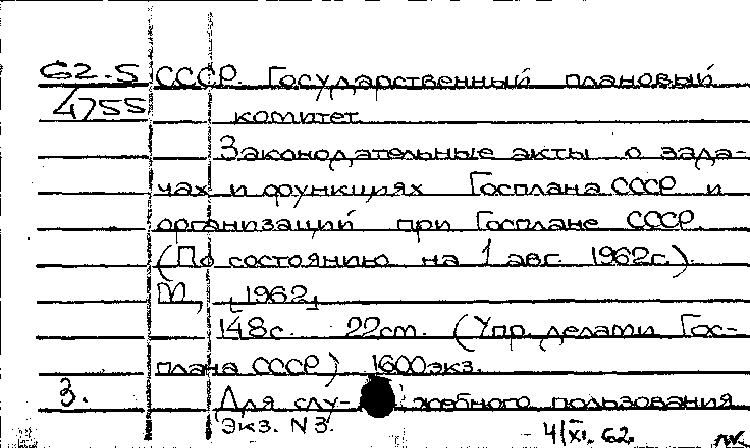 62-5 СССР. Государственный плановый
4755 комитет.
Законодательные акты о зада-
чах и функциях Госплана СССР и
организаций при Госплане СССР.
(По состоянию на 1 авг. 1962г.)
М., [1962]
148с. 22см. (Упр. делами Гос-
плана СССР) 1600экз.
3. Для слу- жебного пользования
Экз. N3.
4/XI. 62.